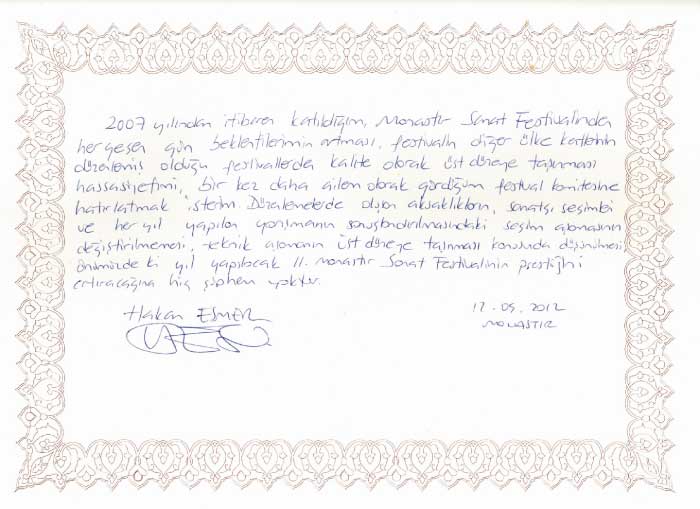 2007 yılından itibaren katıldığım, Monastır Sanat Festivalinde
her geçen gün beklentilerimin artması, festivalin diğer ülke
düzenlemiş olduğu festivallerde kalite olarak üst düzeye taşınması
hassasiyetimi, bir kez daha ailem olarak gördüğüm festival komitesine
hatırlatmak isterim. Düzenlemelerde oluşan aksaklıkların, sanatçı seçimleri
ve her yıl yapılan yarışmanın sonuçlandırılmasındaki seçim aşamasının
değiştirilmemesi, teknik aşamanın üst düzeye taşınması konusunda düşünülmesi
önümüzdeki yıl yapılacak 11. Monastır Sanat Festivalinin prestijini
artıracağına hiç şüphem yoktur.
Hakan ESMER
12.05.2012
MONASTIR